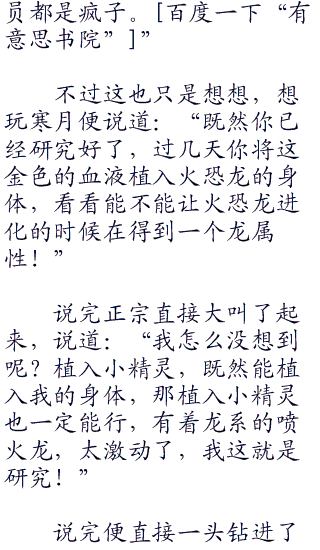 员都是疯子。[百度一下“有
意思书院”]”
不过这也只是想想，想
玩寒月便说道：“既然你已
经研究好了，过几天你将这
金色的血液植入火恐龙的身
体，看看能不能让火恐龙进
化的时候在得到一个龙属
性！”
说完正宗直接大叫了起
来，说道：“我怎么没想到
呢？植入小精灵，既然能植
入我的身体，那植入小精灵
也一定能行，有着龙系的喷
火龙，太激动了，我这就是
研究！”
说完便直接一头钻进了